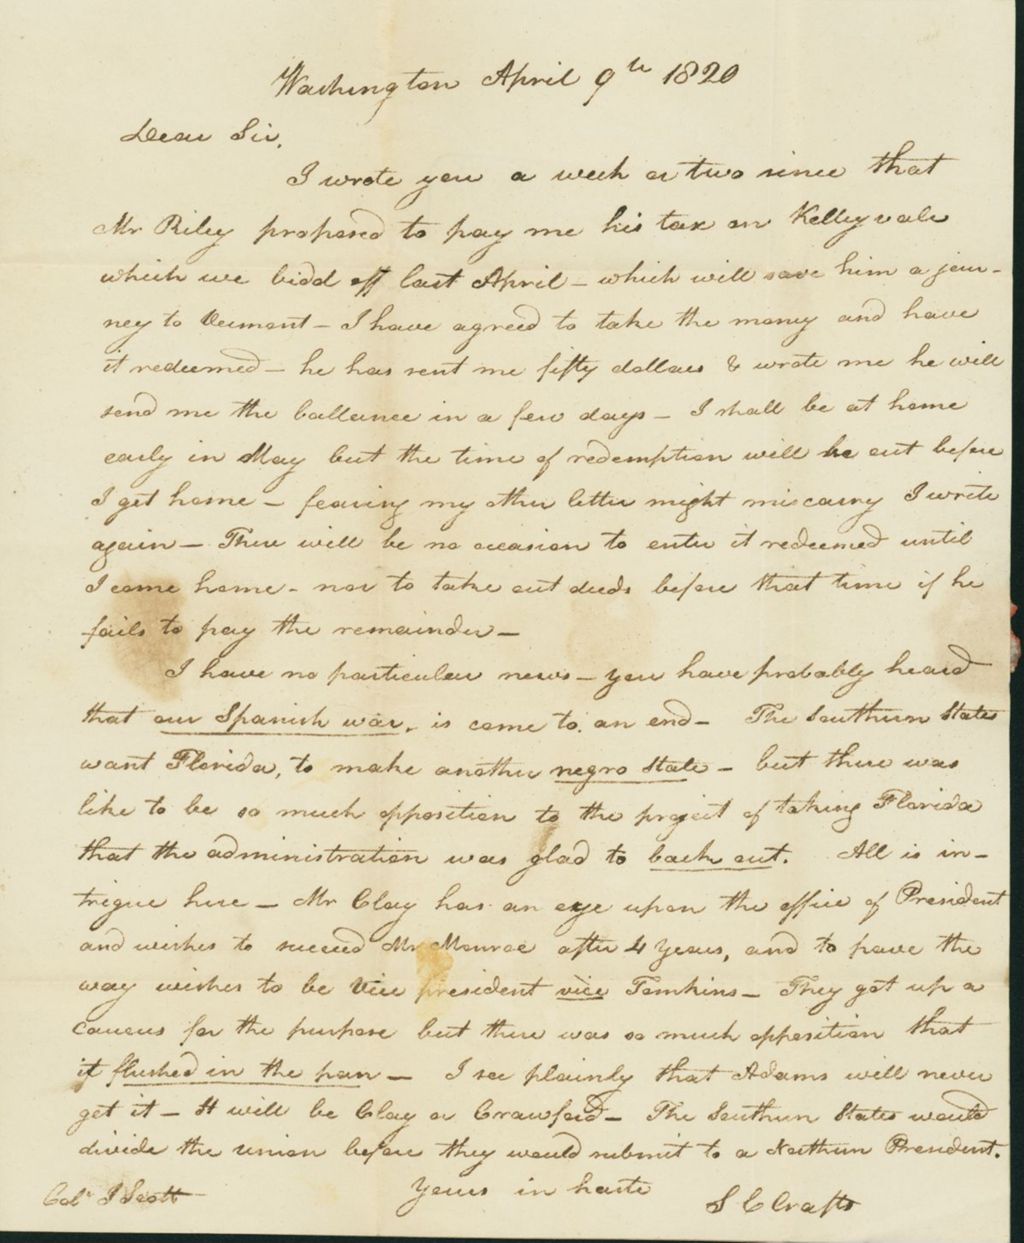 Washington April 9th 1820
Dear Sir,
I wrote you a week or two since that
Mr Riley proposed to pay me his tax on Kelleyvale
which we bidd off last April – which will save him a jour-
ney to Vermont – I have agreed to take the money and have
it redeemed – he has sent me fifty dollars & wrote me he will
send me the ballance in a few days – I shall be at home
early in May but the time of redemption will be out before
I get home – fearing my other letter might miscarry I write
again – There will be no occasion to enter it redeemed until
I come home – nor to take out deeds before that time if he
fails to pay the remainder –
I have no particular news – you have probably heard
that our Spanish war, is come to an end – The Southern States
want Florida, to make another negro State – but there was
like to be so much opposition to the project of taking Florida
that the administration was glad to back out. All is in-
trigue here – Mr Clay has an eye upon the office of President
and wishes to succeed Mr Monroe after 4 years, and to pave the
way wishes to be Vice president vice Tomkins – They got up a
caucus for the purpose but there was so much opposition that
it flushed in the pan – I see plainly that Adams will never
get it – It will be Clay or Crawford – The Southern States would
divide the union before they would submit to a Northern President.
Yours in haste
S C Crafts
Col. J Scott